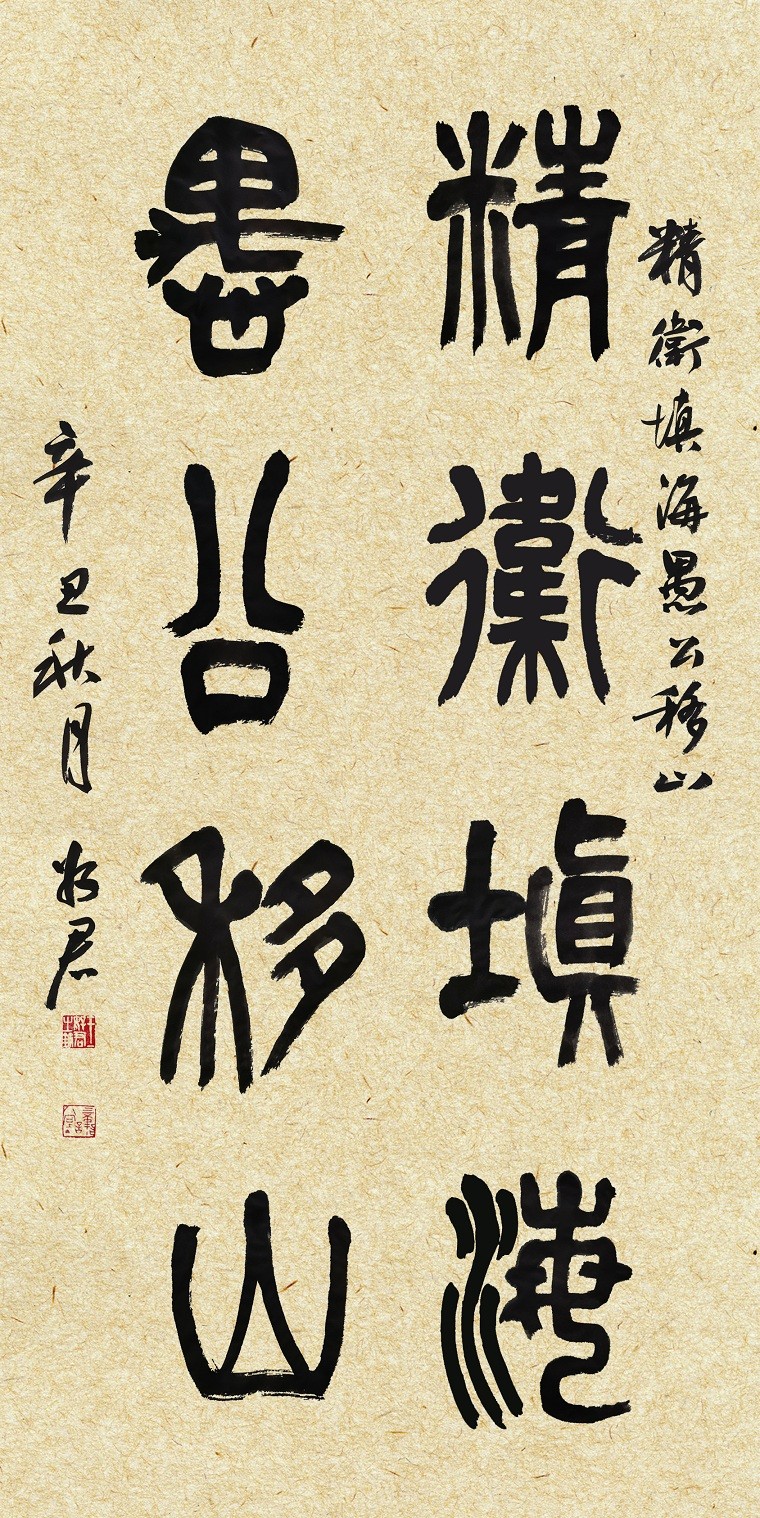 精衛填海愚公移山
精衛填海
愚公移山
辛丑秋月